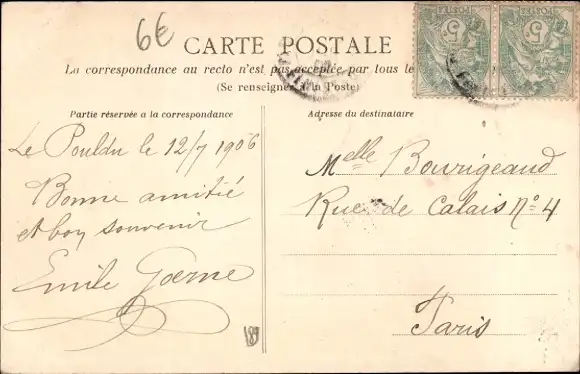 6€
CARTE POSTALE
La correspondance au recto n'est pas acceptée par tous le
(Se renseigner à la Poste)
Partie réservée a la correspondance
Adresse du destinataire
Le Pouldu le 12/7 1906
Bonne amitié
et bon souvenir
Emile
Melle Bourigeaud
Rue de Calais No 4
Paris
5c
5c
POSTES
POSTES
189